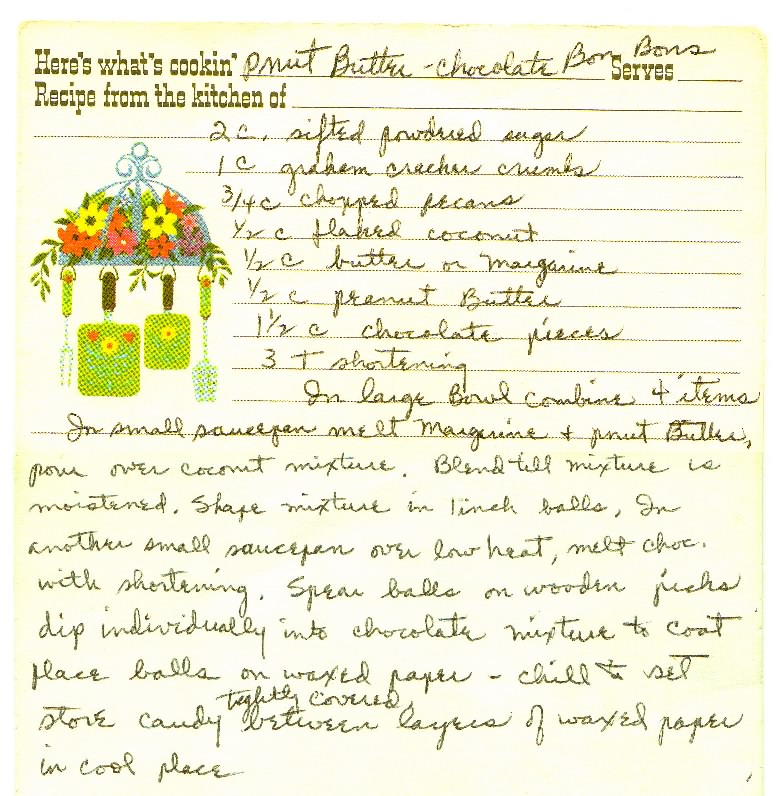 Here's what's cookin' Pnut Butter - chocolate Bon Bons Serves
Recipe from the kitchen of
2 c. sifted powdered sugar
1 c graham cracker crumbs
3/4 c chopped pecans
1/2 c flaked coconut
1/2 c butter or Margarine
1/2 c peanut Butter
1 1/2 c chocolate pieces
3 T shortening
In large Bowl combine 4 items
In small saucepan melt Margarine + pnut Butter,
pour over coconut mixture. Blend till mixture is
moistened. Shape mixture in 1 inch balls. In
another small saucepan over low heat, melt choc.
with shortening. Spear balls on wooden picks
dip individually into chocolate mixture to coat
place balls on waxed paper - chill to set
store candy tightly covered, between layers of waxed paper
in cool place